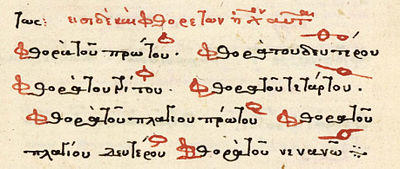 τως: εισὶ δὲ καὶ φθορὲ τῶν ήχων αὗται
φθορὰ τοῦ πρώτου. φθορὰ του δευτέρου
φθορὰ του τρίτου. φθορὰ τοῦ τετάρτου.
φθορὰ τοῦ πλαγίου πρώτου φθορὰ τοῦ
πλαγίου δευτέρου φθορὰ τοῦ νενανῶ